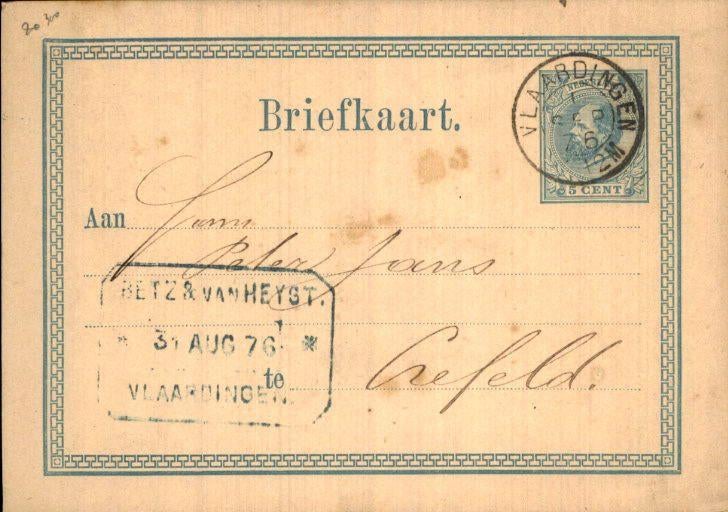 20 300
Briefkaart.
VLAARDINGEN
1 SEP
76
12M
5 CENT
Aan Herrn
Peter Jans
BETZ & VAN HEYST.
31 AUG 76 *
te Crefeld.
VLAARDINGEN.